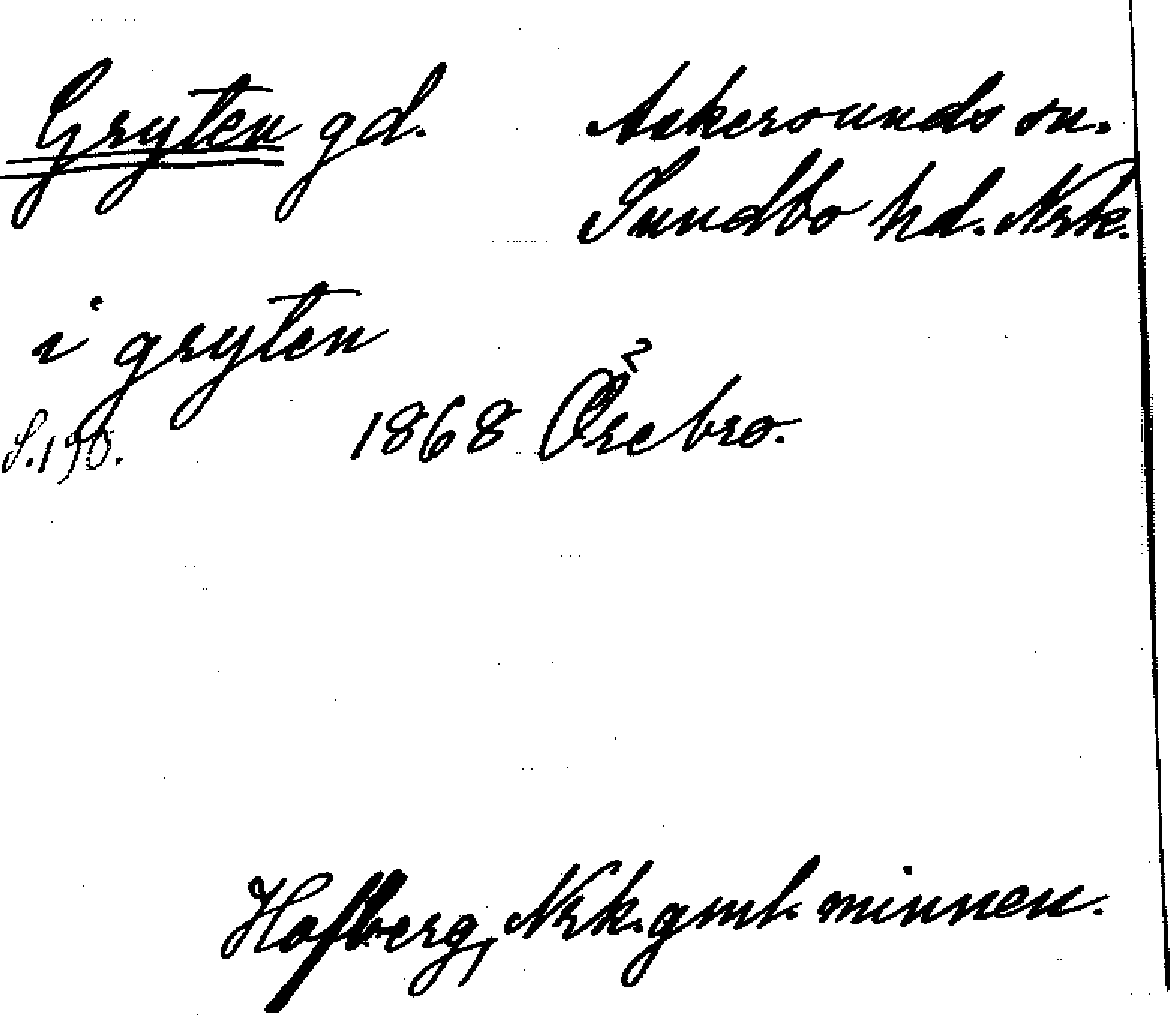 Gryten gd. Askersunds sn.
Sundbo hd. Nrk.
i gryten
S. 190. 1868 Örebro.
Hofberg, Nrk. gml. minnen.